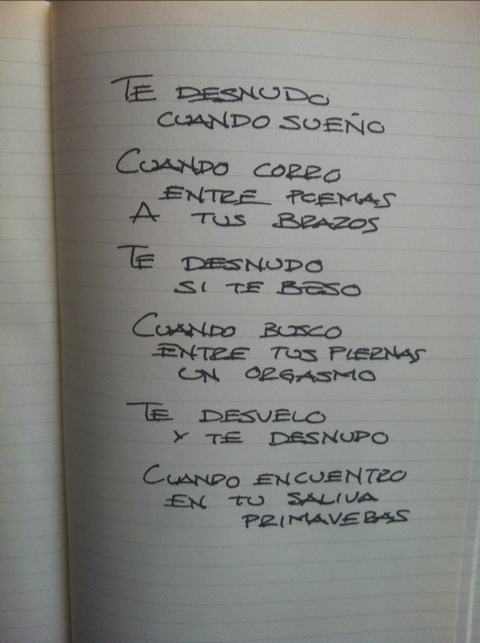 TE DESNUDO
CUANDO SUEÑO
CUANDO CORRO
ENTRE POEMAS
A TUS BRAZOS
TE DESNUDO
SI TE BESO
CUANDO BUSCO
ENTRE TUS PIERNAS
UN ORGASMO
TE DESVELO
Y TE DESNUDO
CUANDO ENCUENTRO
EN TU SALIVA
PRIMAVERAS